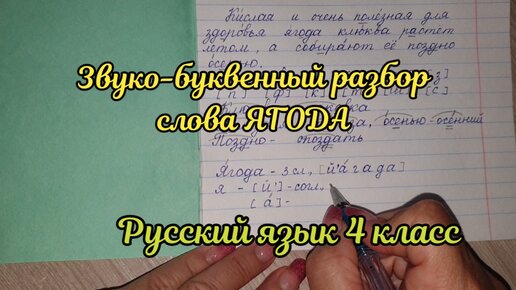 Кислая и очень полезная для
здоровья ягода клюква растет
летом, а собирают её поздно
осенью.
Звуко-буквенный разбор
слова ЯГОДА
осенью-осенний
Поздно- опоздать
Ягода - 3 сл, [й'а́ г а д а]
я - [й'] -согл,
[а́] -
Русский язык 4 класс